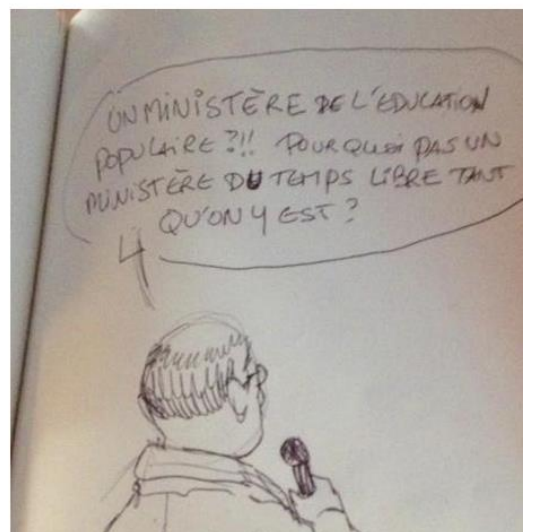 UN MINISTÈRE DE L'EDUCATION
POPULAIRE ?!! POURQUOI PAS UN
MINISTÈRE DU TEMPS LIBRE TANT
QU'ON Y EST ?